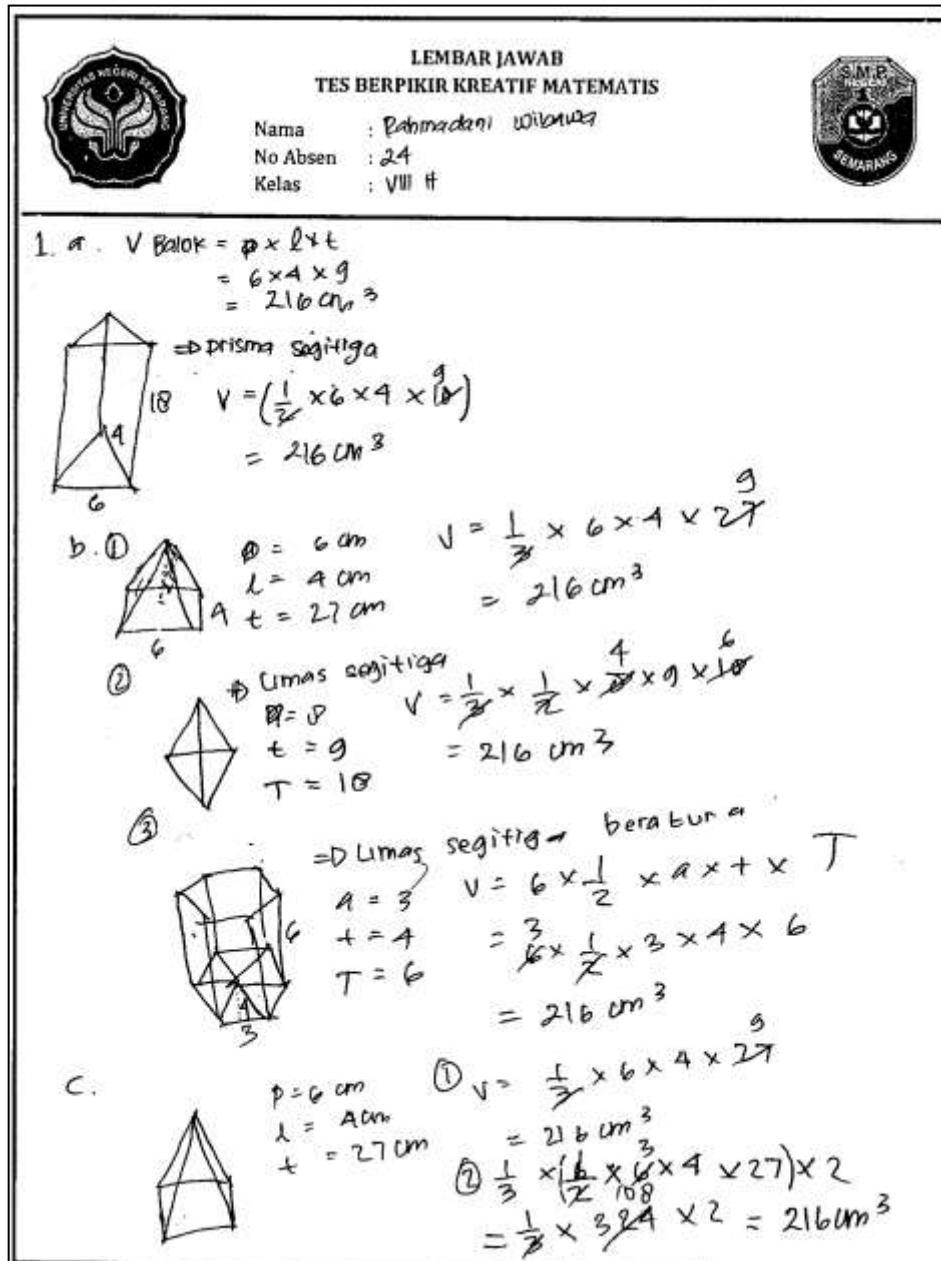 UNIVERSITAS NEGERI SEMARANG
LEMBAR JAWAB
TES BERPIKIR KREATIF MATEMATIS
S.M.P.
SEMARANG
Nama : Rahmadani Wibawa
No Absen : 24
Kelas : VIII H
1. a. V Balok = p × l × t
= 6 × 4 × 9
= 216 cm³
=> prisma segitiga
18
4
6
V = (1/2 × 6 × 4 × 18) 9
= 216 cm³
b. ① p = 6 cm
l = 4 cm
t = 27 cm
4
6
V = 1/3 × 6 × 4 × 27 9
= 216 cm³
② => Limas segitiga
a = 8
t = 9
T = 18
V = 1/3 × 1/2 × 8 4 × 9 × 18 6
= 216 cm³
③ => Limas segitiga beratura
a = 3
t = 4
T = 6
6
4
3
V = 6 × 1/2 × a × t × T
= 6 3 × 1/2 × 3 × 4 × 6
= 216 cm³
C. p = 6 cm
l = 4 cm
t = 27 cm
① V = 1/3 × 6 × 4 × 27 9
= 216 cm³
② 1/3 × (1/2 × 6 3 × 4 × 27) × 2
= 1/3 × 324 108 × 2 = 216 cm³